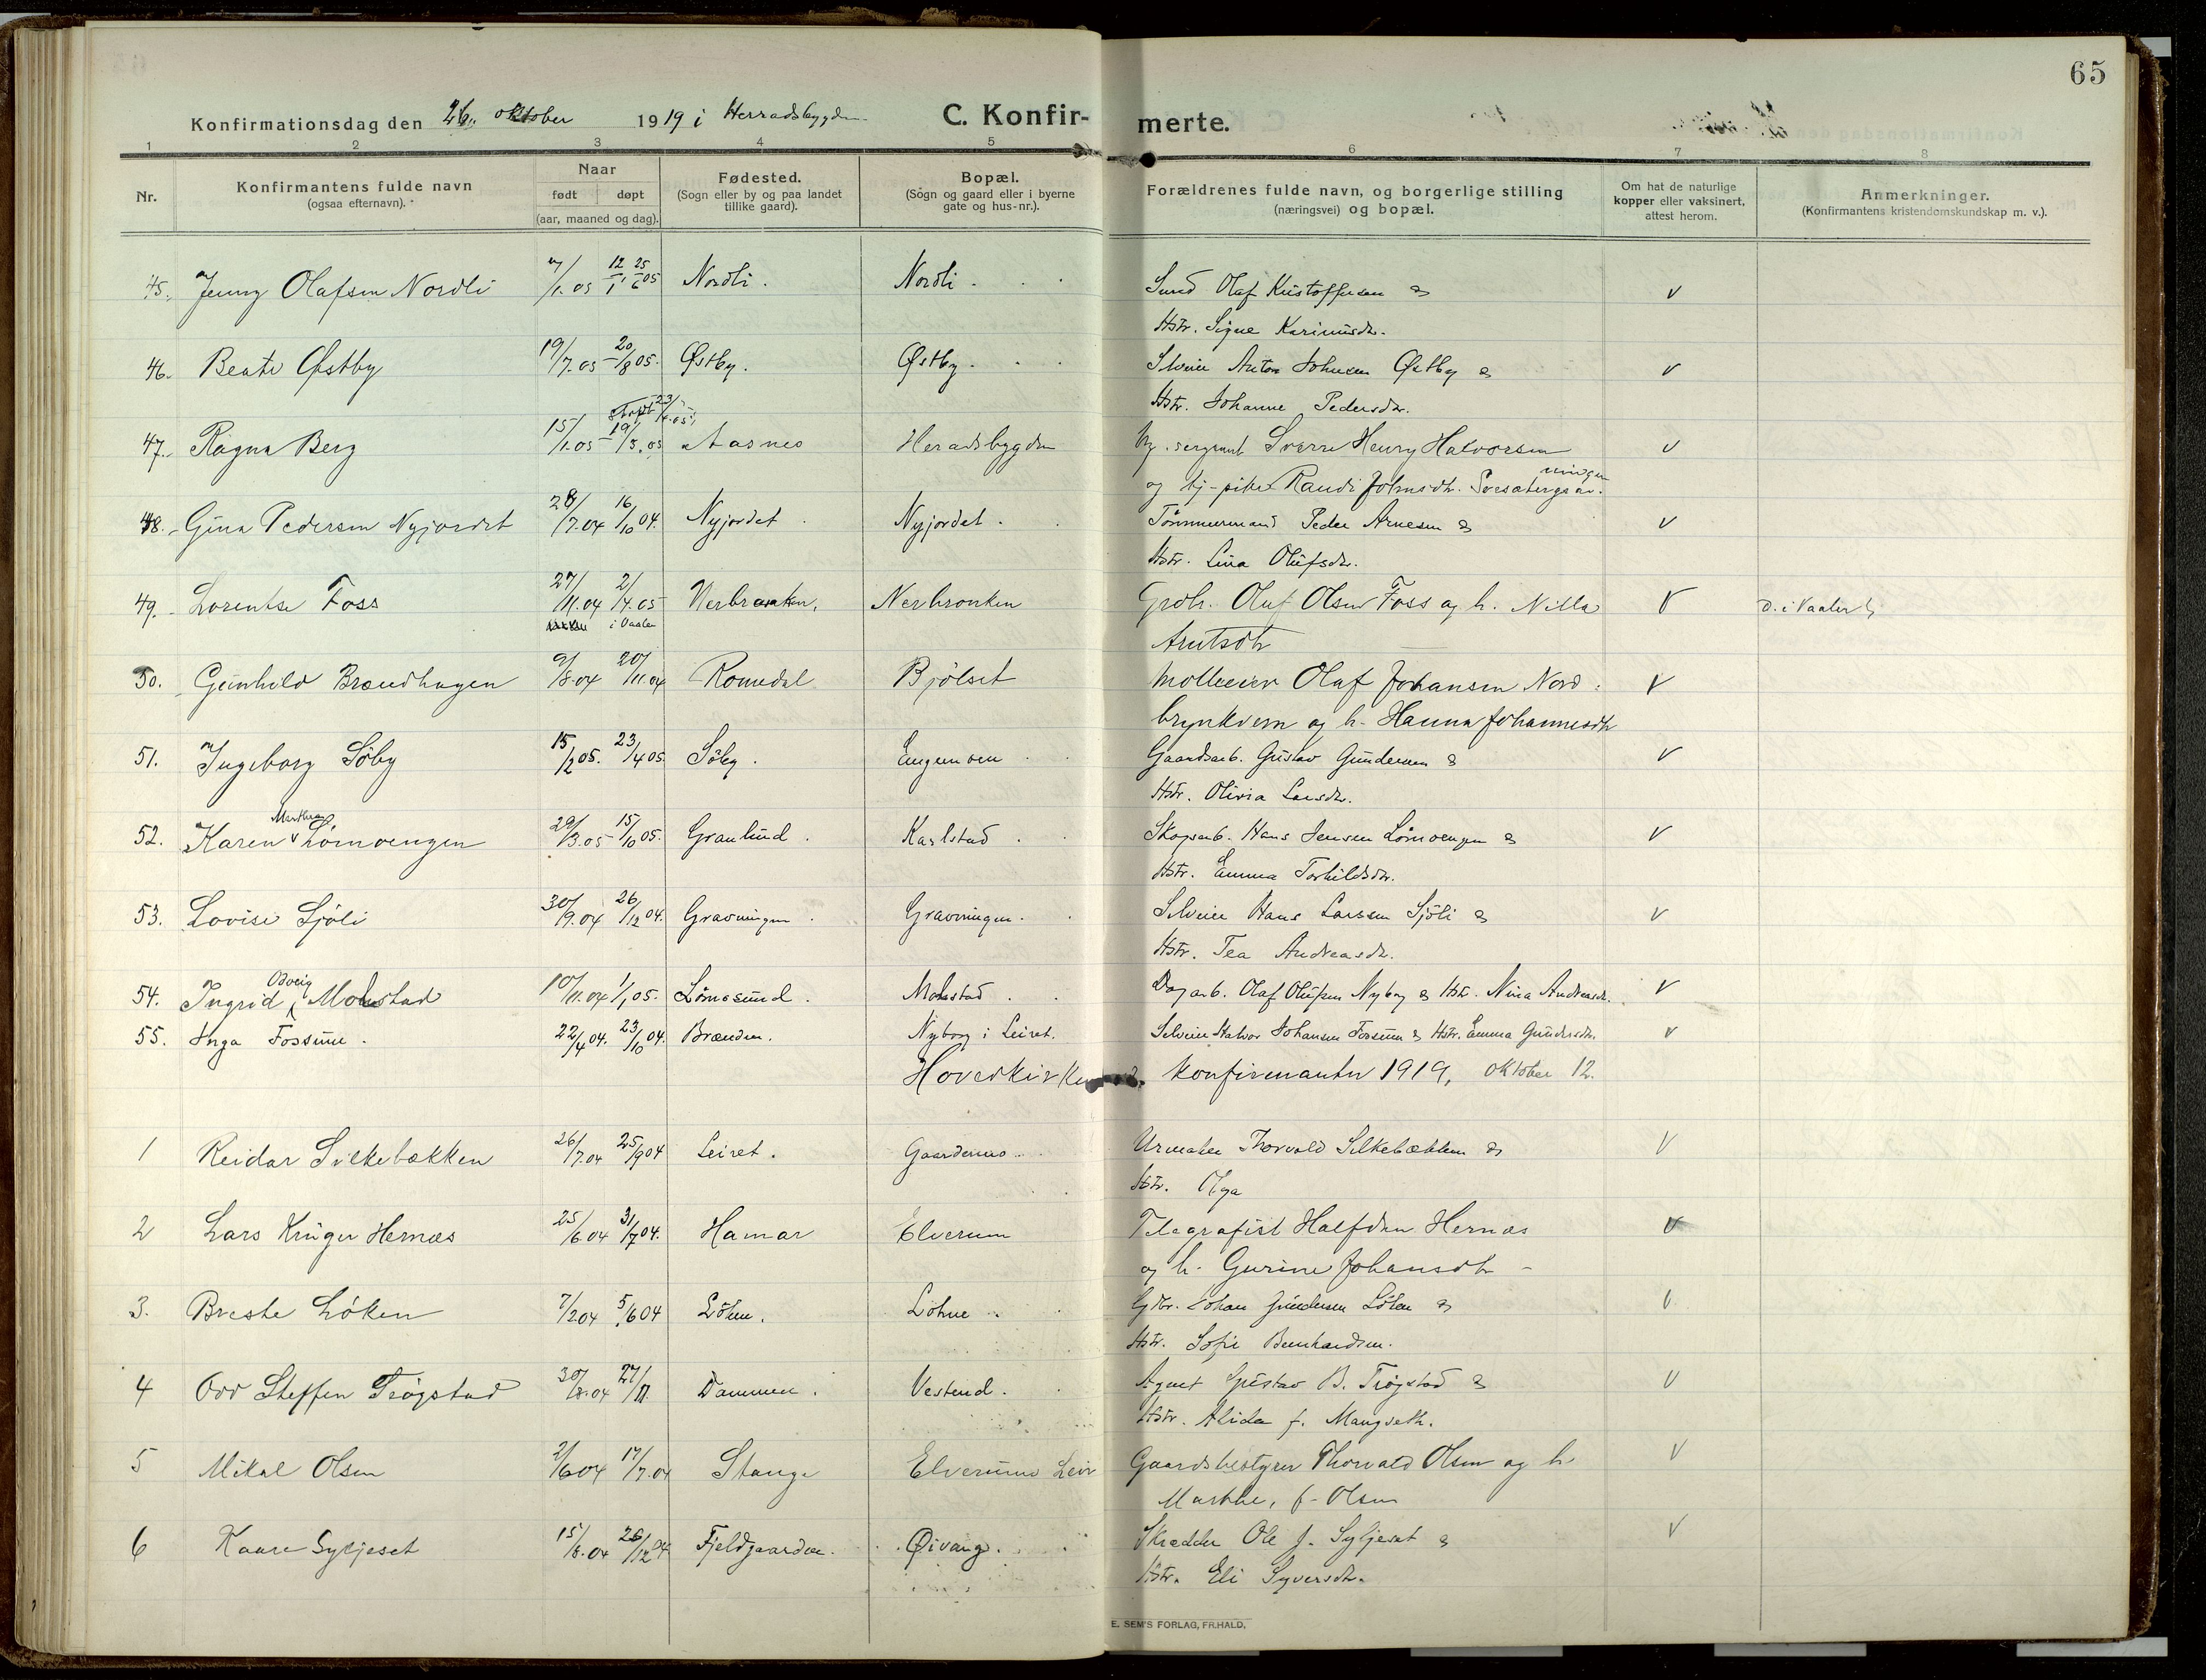 65
Konfirmationsdag den 26. oktober 1919 i Herradsbygden C. Konfirmerte.
1 2 3 4 5 6 7 8
Nr.
Konfirmantens fulde navn
(ogsaa efternavn).
Naar
født døpt
(aar, maaned og dag).
Fødested.
(Sogn eller by og paa landet
tillike gaard).
Bopæl.
(Sogn og gaard eller i byerne
gate og hus-nr.).
Forældrenes fulde navn, og borgerlige stilling
(næringsvei) og bopæl.
Om hat de naturlige
kopper eller vaksinert,
attest herom.
Anmerkninger.
(Konfirmantens kristendomskundskap m. v.).
45. Jenny Olafsen Nordli Nordli. Nordli. Olaf Kristoffersen & v
Hstr. Signe Karinusdr.
46. Beate Østby 19/7.05 20/8 05. Østby. Østby. Selveier Anton Johnsen Østby & v
Hstr. Johanne Pedersdr.
23/4.05
47. Ragna Berg 15/1.05 19/3.05 Aasnes Heradsbygden sergeant Sverre Henry Halvorsen v
og tj-pike Randi Johnsdtr.
48. Gina Pedersen Nyjordet 28/7.04 16/10 04. Nyjordet. Nyjordet. Tømmermand Peder Arnesen & v
Hstr. Lina Olufsdr.
49. Lorentse Foss 27/11.04 2/4.05 Nerbronken. Nerbronken Grdbr. Oluf Olsen Foss og h. Nilla v D. i Vaaler
i Vaaler
Arntsdtr
50. Gunhild Brændhagen 9/8.04 20/11.04 Romedal Bjölset Mølleeier Olaf Johansen Nord- v
brynkvern og h. Hanna Johannesdtr
51. Ingeborg Söby 15/2 05. 23/4 05. Söby. Engemoen Gaardsarb. Gustav Gundersen & v
Hstr. Olivia Larsdr.
Marthea
52. Karen v Lömoengen 29/3.05 15/10 05. Granlund. Karlstad Skogsarb. Hans Jensen Lömoengen & v
Hstr. Emma Torkildsdr.
53. Lovise Sjöli 30/9.04 26/12 04. Gravningen. Gravningen. Selveier Hans Larsen Sjöli & v
Hstr. Tea Andreasdr.
Solveig
54. Ingrid Molstad 10/11.04 1/1 05. Lömosund. Molstad Dagarb. Olaf Olufsen Nyborg & Hstr. Nina Andreasdr. v
55. Inga Fossum. 22/4 04. 23/10 04. Brænden. Nyborg i Leiret. Selveier Halvor Johansen Fossum & Hstr. Emma Gundersdr. v
Hovedkirkens konfirmanter 1919, oktober 12.
1 Reidar Silkebækken 26/7.04 25/9 04 Leiret. Gaardermo Urmaker Thorvald Silkebækken & v
Hstr. Olga
2 Lars Krüger Hernæs 25/6.04 31/7 04. Hamar Elverum Telegrafist Halfdan Hernæs v
og h. Gurine Johansdtr
3. Breste Löken 7/2 04 5/6 04 Löken. Löhne Gdbr. Johan Gundersen Löken & v
Hstr. Sofie Bernhardsen.
4 Odd Steffen Trögstad 30/8.04 27/11. Dammen. Vestend. Agent Gustav B. Trögstad & v
Hstr. Alida f. Mangseth.
5 Mikal Olsen 2/6 04 17/7.04 Stange Elverums Leir Gaardsbestyrer Thorvald Olsen og h v
Marthe, f. Olsen
6 Kaare Syljeset 15/8.04 26/12 04 Fjeldgaarden. Øivang. Skrædder Ole J. Syljeset & v
Hstr. Eli Syversdtr.
E. SEM'S FORLAG, FR.HALD.